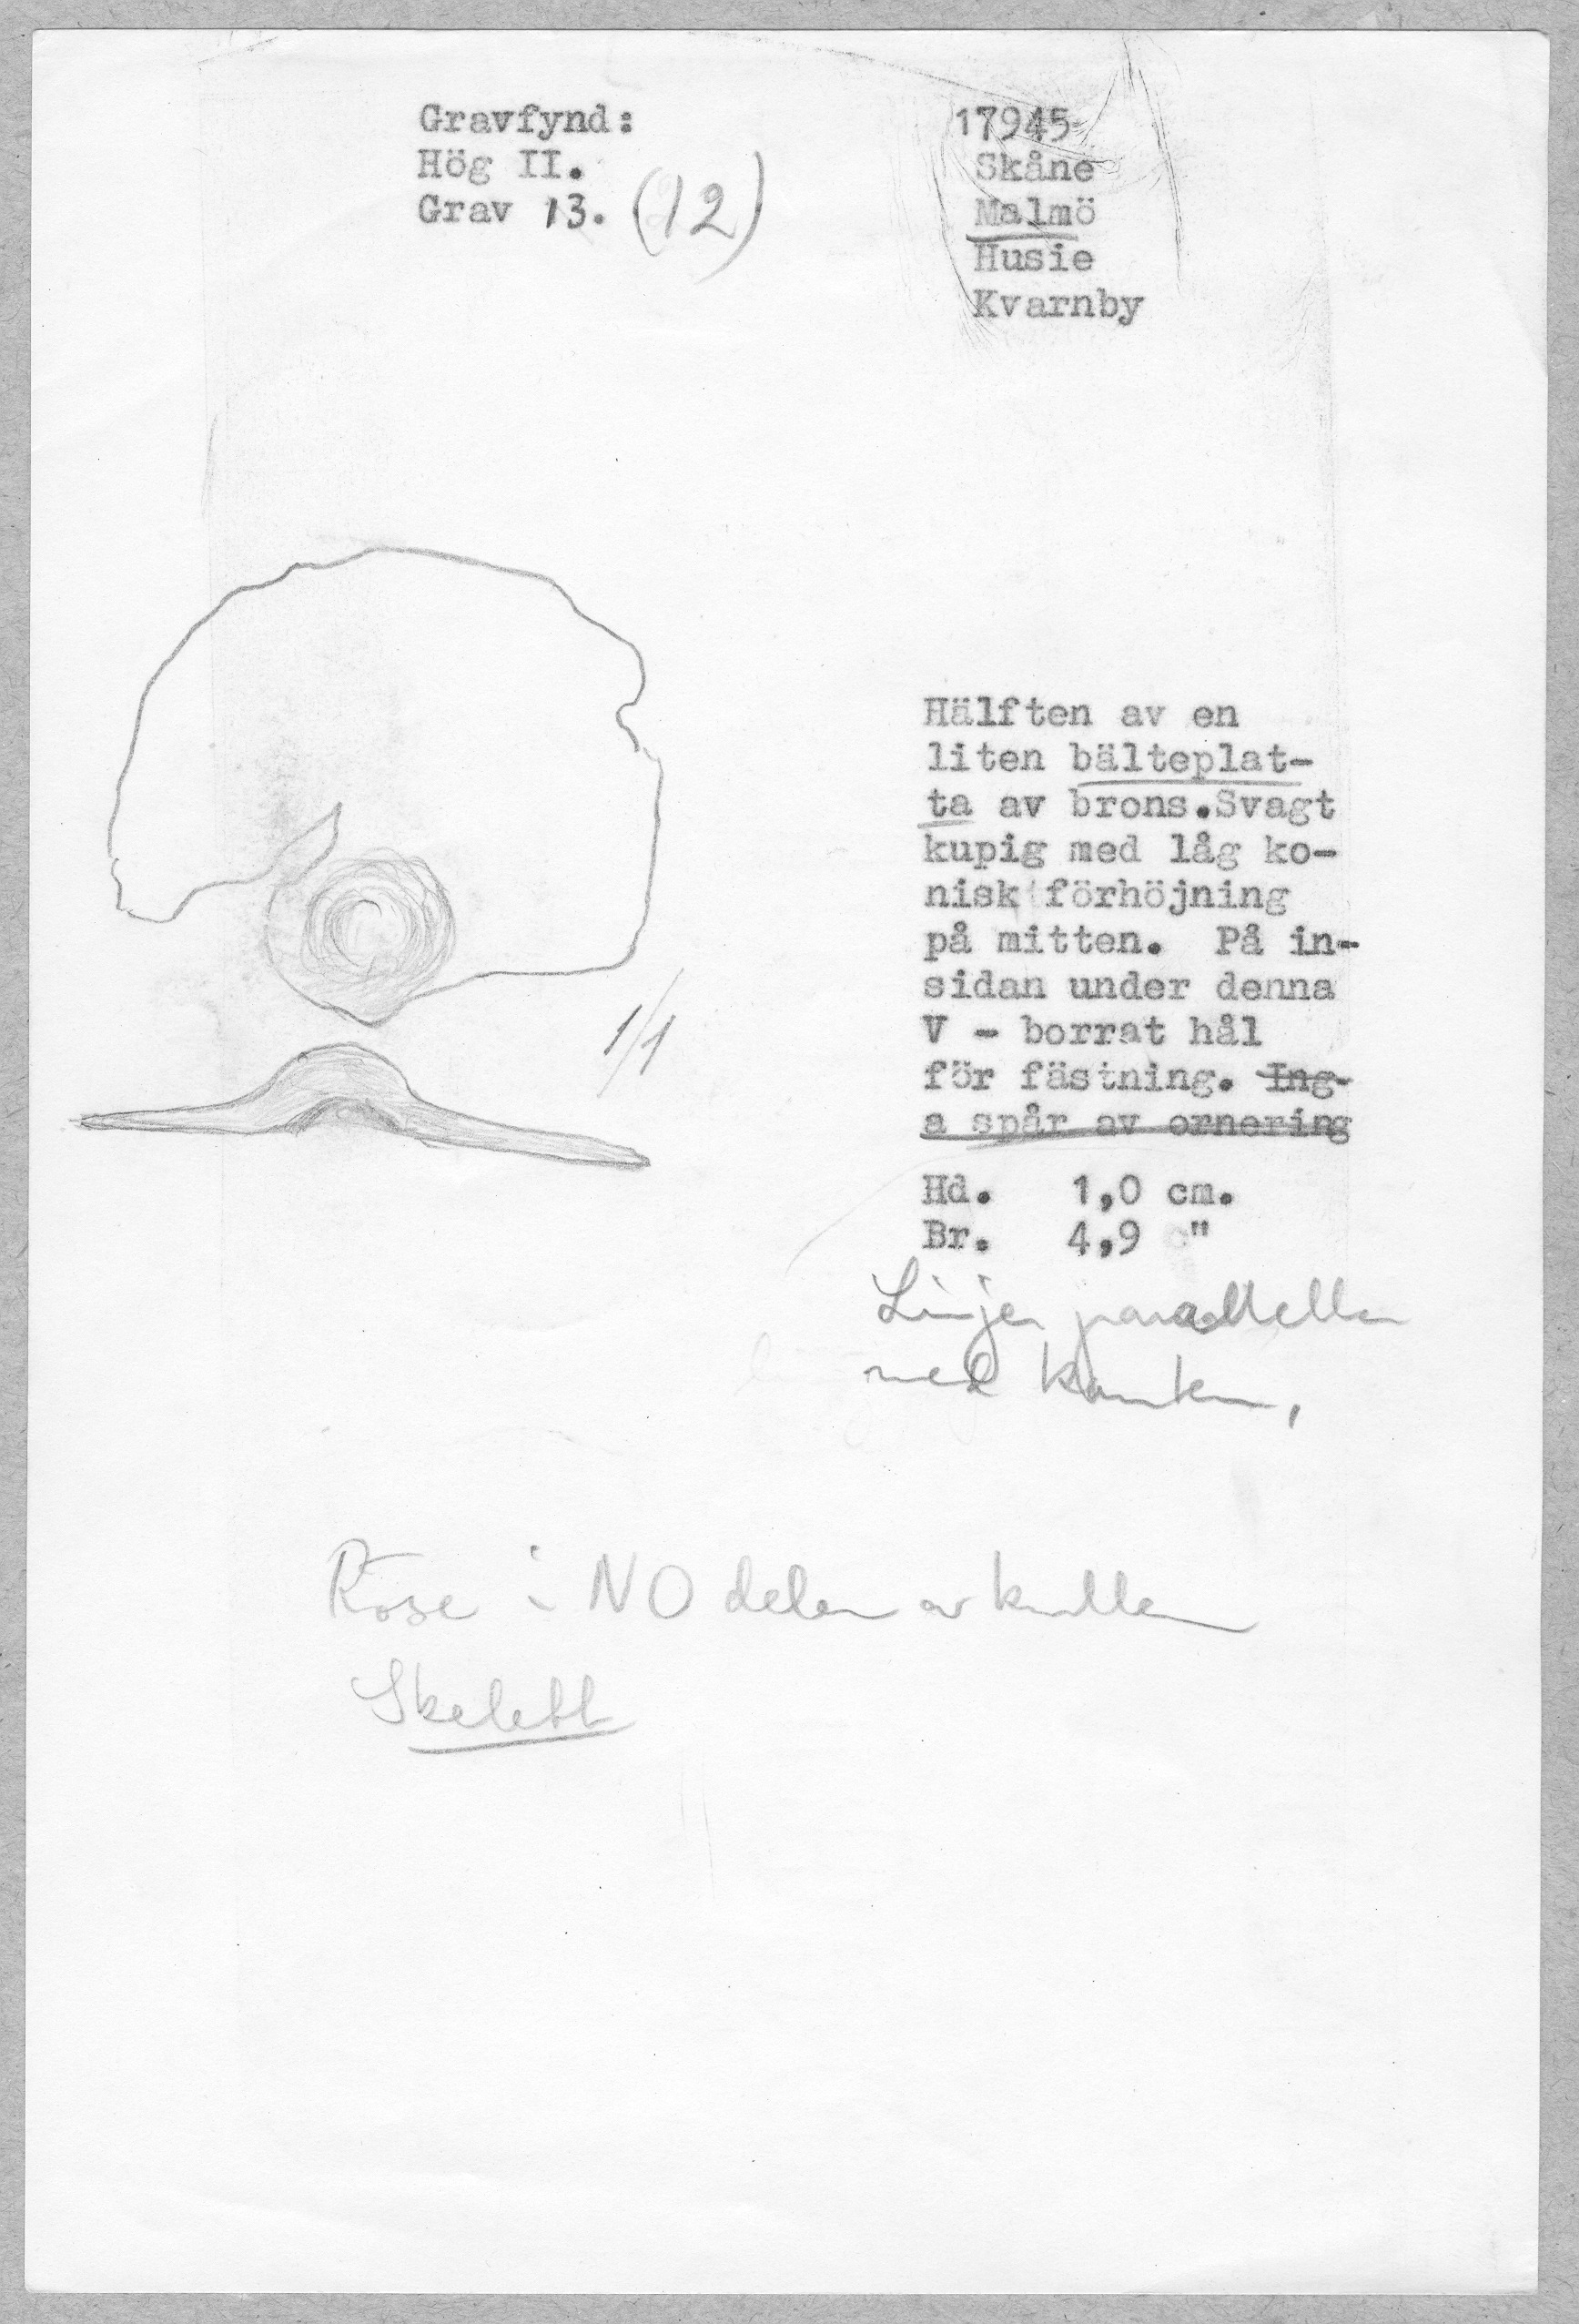 Gravfynd:
Hög II.
Grav 13. (12)
17945
Skåne
Malmö
Husie
Kvarnby
Hälften av en
liten bälteplat-
ta av brons.Svagt
kupig med låg ko-
nisk förhöjning
på mitten. På in-
sidan under denna
V - borrat hål
för fästning. Ing-
a spår av ornering
Hd. 1,0 cm.
Br. 4,9 "
Linjer parallella
med kanten,
1/1
Röse i NO delen av kullen
Skelett